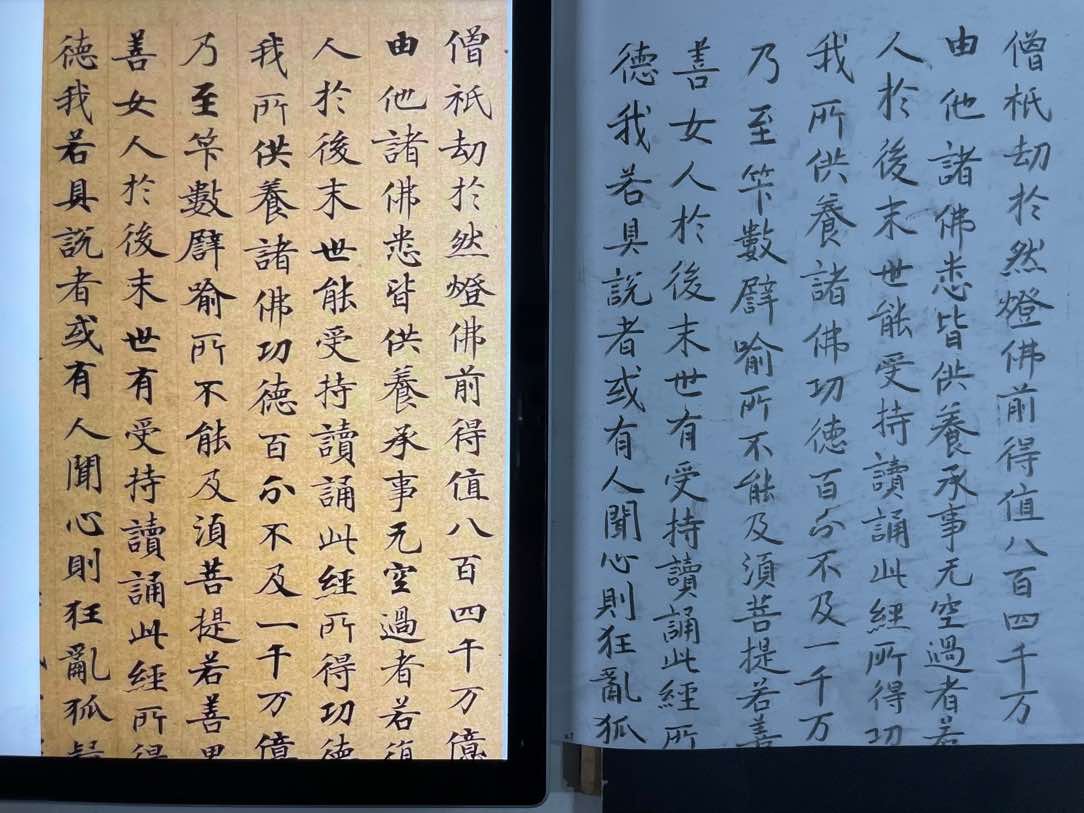 僧祇劫於然燈佛前得值八百四千万億
由他諸佛悉皆供養承事无空過者若復
人於後末世能受持讀誦此經所得功德
我所供養諸佛功德百分不及一千万億
乃至笇數譬喻所不能及須菩提若善男
善女人於後末世有受持讀誦此經所得
德我若具說者或有人聞心則狂亂狐疑
僧祇劫於然燈佛前得值八百四千万
由他諸佛悉皆供養承事无空過者若
人於後末世能受持讀誦此經所得功
我所供養諸佛功德百分不及一千万
乃至笇數譬喻所不能及須菩提若善
善女人於後末世有受持讀誦此經所
德我若具說者或有人聞心則狂亂狐